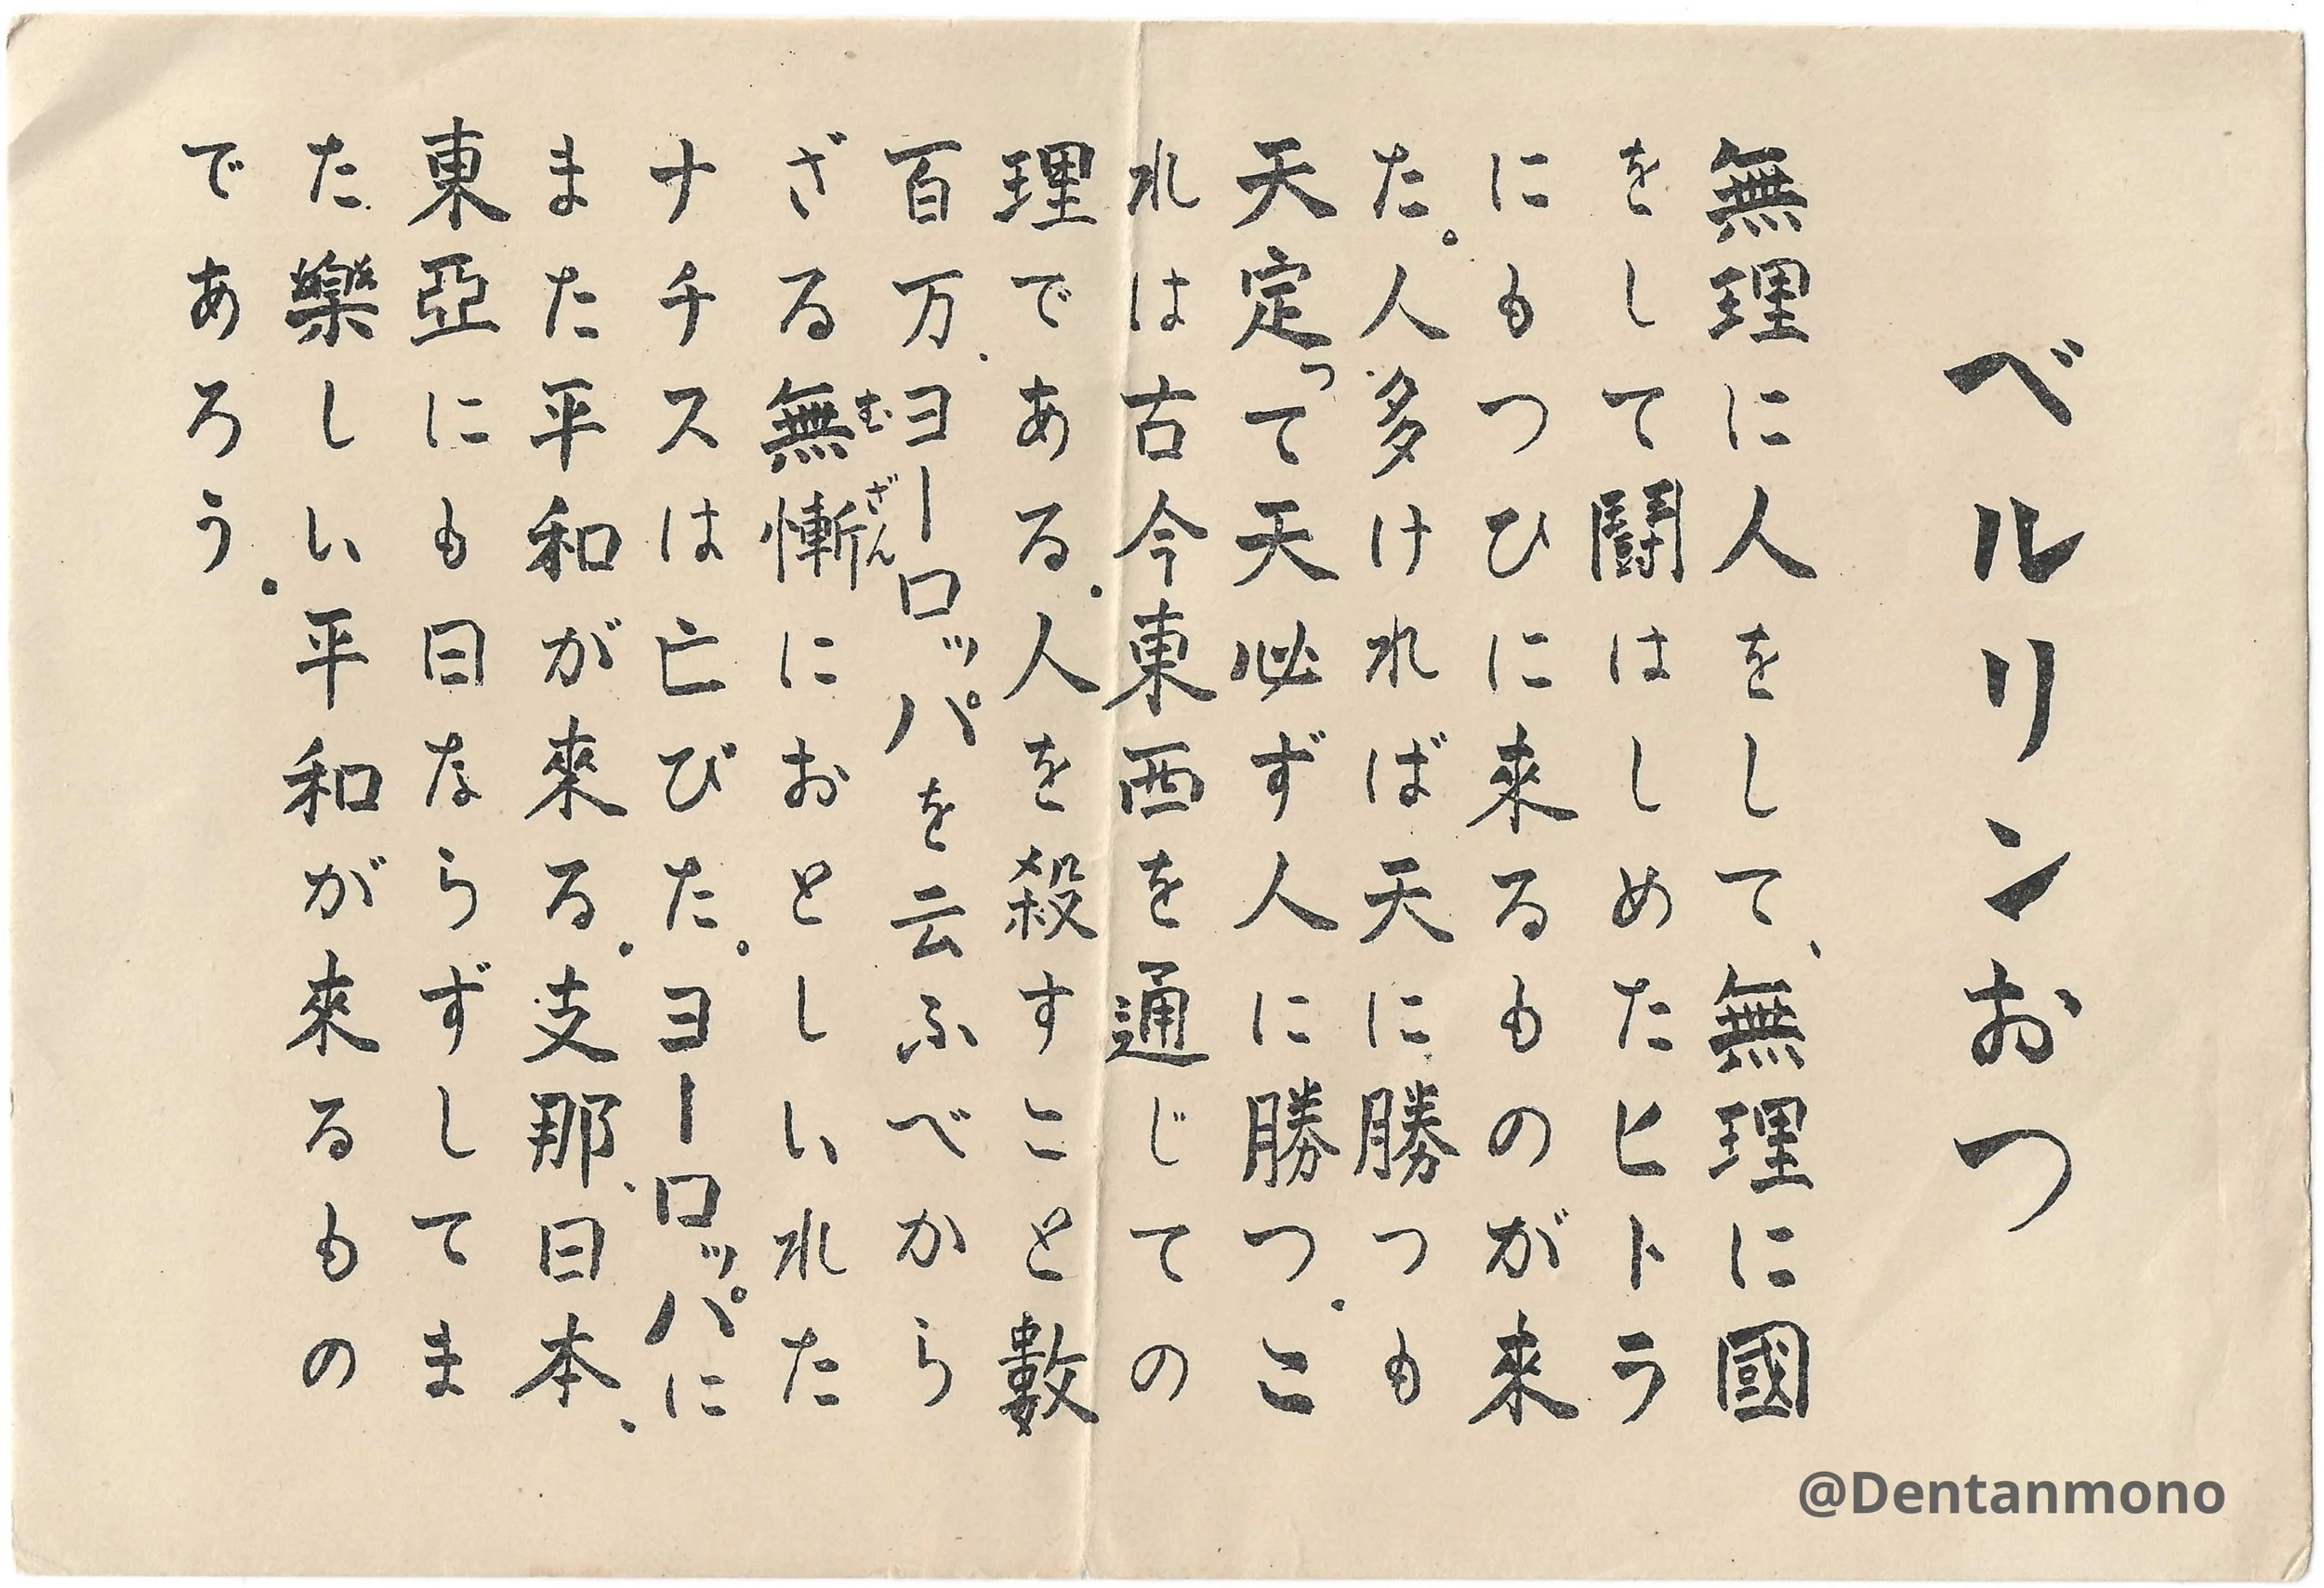 ベルリンおつ
無理に人をして、無理に國
をして鬪はしめたヒトラ
にもつひに來るものが來
た。人多ければ天に勝つも
天定って天必ず人に勝つ。こ
れは古今東西を通じての
理である。人を殺すこと數
百万、ヨーロッパを云ふべから
ざる無慚におとしいれた
むざん
ナチスは亡びた。ヨーロッパに
また平和が來る。支那、日本、
東亞にも日ならずしてま
た樂しい平和が來るもの
であろう。
@Dentanmono